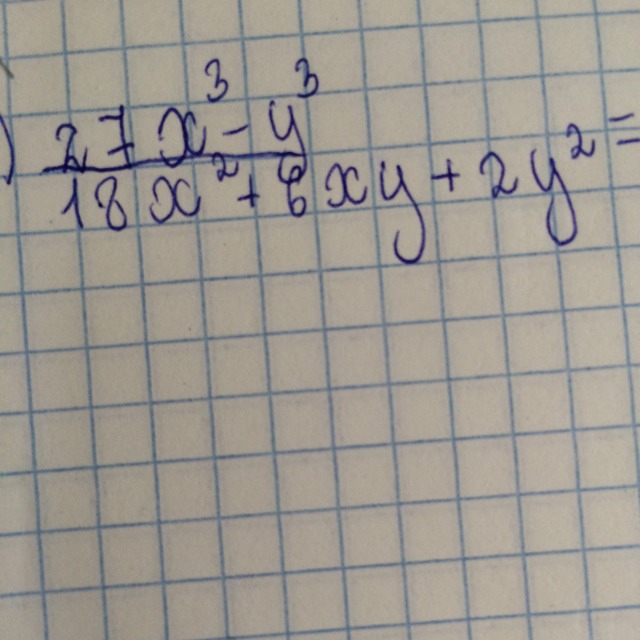 ) 27x³-y³
18x²+6xy+2y² =